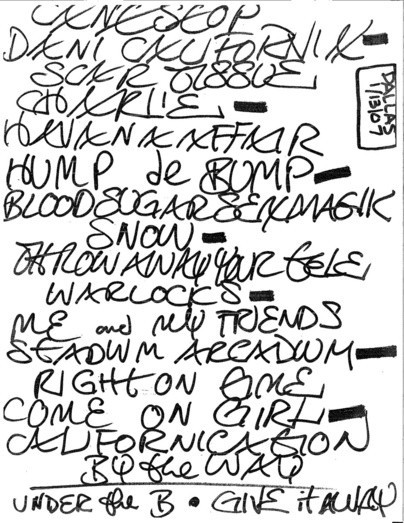 CANT STOP
DANI CALIFORNIA
SCAR TISSUE
CHARLIE
HAVANA AFFAIR
HUMP de BUMP
BLOOD SUGAR SEX MAGIK
SNOW
THROW AWAY YOUR TELE
WARLOCKS
ME and MY FRIENDS
STADIUM ARCADIUM
RIGHT ON TIME
COME ON GIRL
CALIFORNICATION
BY the WAY
UNDER the B • GIVE it AWAY
DALLAS
1/13/07